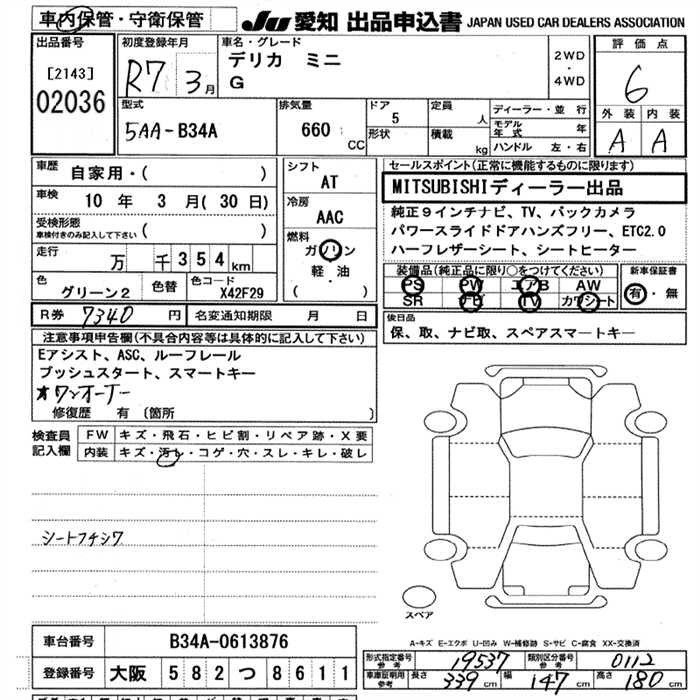 車内保管・守衛保管
JU 愛知 出品申込書 JAPAN USED CAR DEALERS ASSOCIATION
出品番号
[2143]
02036
初度登録年月
R7 3月
車名・グレード
デリカ ミニ
G
2WD
・
4WD
評価点
6
外装 内装
A A
型式
5AA-B34A
排気量
660 CC
ドア
5
形状
定員
人
積載
kg
ディーラー・並行
モデル年式 年
ハンドル 左・右
車歴
自家用・( )
車検
10 年 3 月( 30 日)
受検形態
車検付きのみ記入して下さい
( )
走行
万 千 354 km
色
グリーン2
色替
色コード
X42F29
シフト
AT
冷房
AAC
燃料
ガソリン
軽・油
( )
セールスポイント(正常に機能するものに限ります)
MITSUBISHIディーラー出品
純正9インチナビ、TV、バックカメラ
パワースライドドアハンズフリー、ETC2.0
ハーフレザーシート、シートヒーター
装備品(純正品に限り○をつけてください)
PS PW エアB AW
SR ナビ TV カワシート
新車保証書
有・無
R券 7340 円
名変通知期限 月 日
後日品
保、取、ナビ取、スペアスマートキー
注意事項申告欄(不具合内容等は具体的に記入して下さい)
Eアシスト、ASC、ルーフレール
プッシュスタート、スマートキー
オワンオーナー
修復歴 有 〔箇所 〕
検査員
記入欄
FW キズ・飛石・ヒビ割・リペア跡・X要
内装 キズ・汚レ・コゲ・穴・スレ・キレ・破レ
シートフチシワ
スペア
A-キズ E-エクボ U-凹み W-補修跡 S-サビ C-腐食 XX-交換済
車台番号
B34A-0613876
登録番号
大阪 582 つ 8611
形式指定番号
参考
19537
類別区分番号
参考
0112
車庫証明用
参考
長さ 339 cm 幅 147 cm 高さ 180 cm